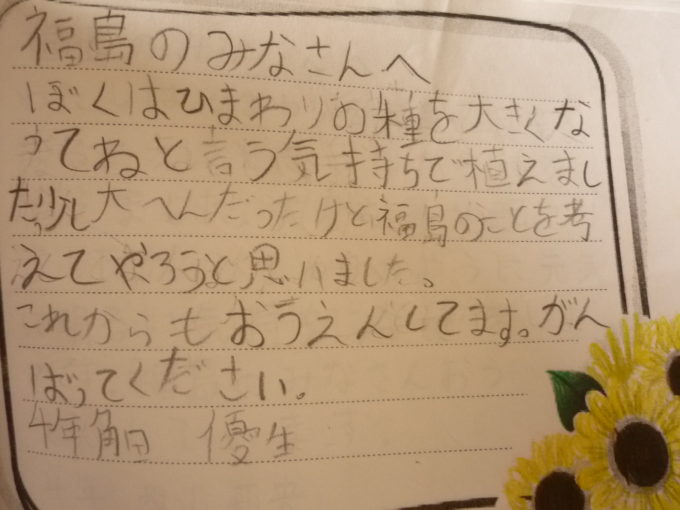 福島のみなさんへ
ぼくはひまわりの種を大きくな
ってねと言う気持ちで植えまし
た。少し大へんだったけど福島のことを考
えてやろうと思いました。
これからもおうえんしてます。がん
ばってください。
4年 角田 優生